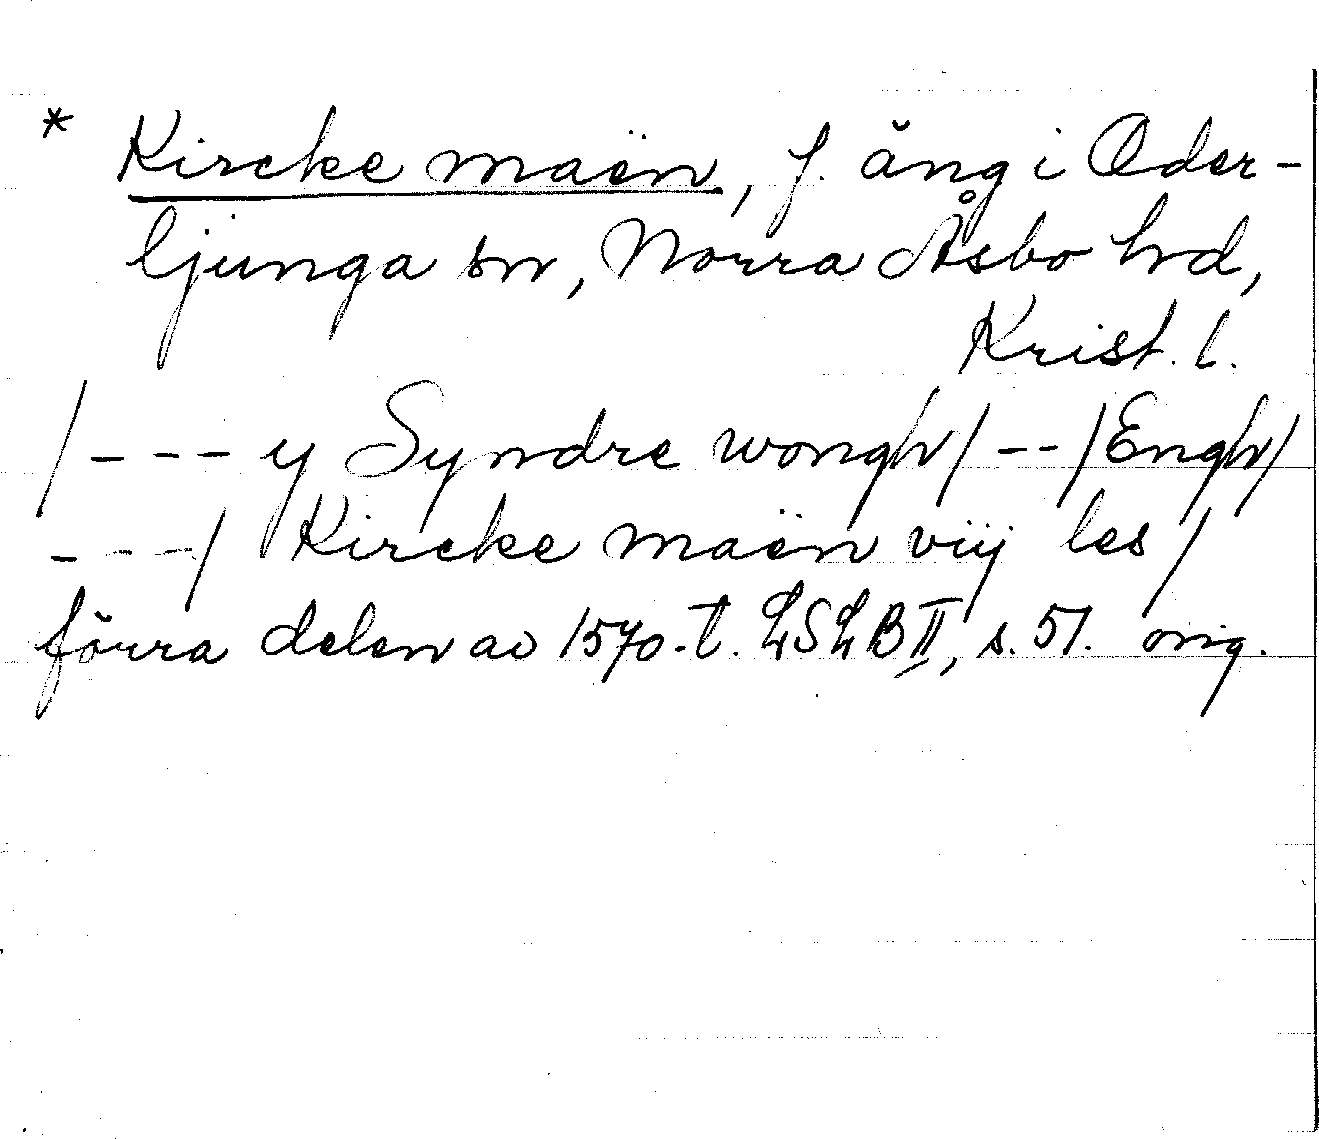 * Kircke maën, f. äng i Oder-
ljunga sn, Norra Åsbo hrd,
Krist. l.
/--- y Syndre wongh/--/Engh/
---/ Kircke maën viij les/
förra delen av 1570-t. LSLB II, s. 51. orig.